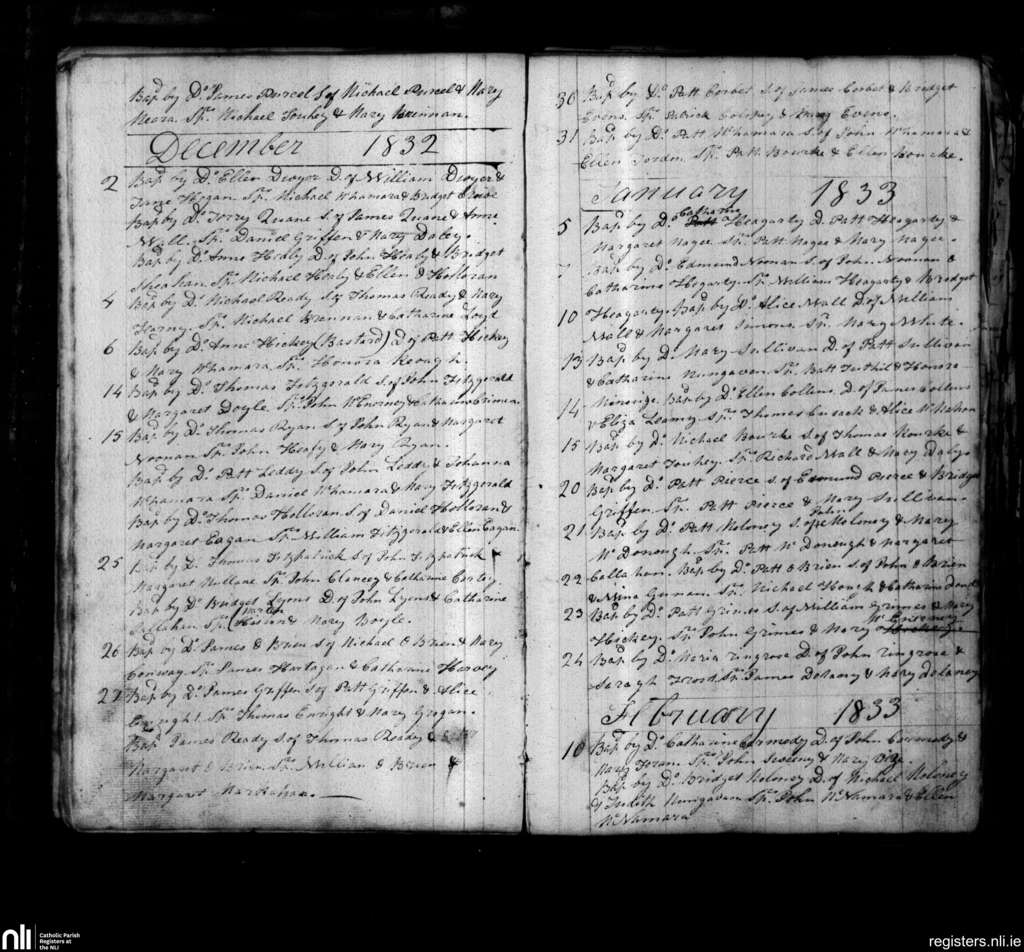 Bap. by Do. James Purcel S of Michael Purcel & Mary
Meara. Spr. Michael Touhey & Mary Brennan.
December 1832
2 Bap. by Do. Ellen Dwyer D. of William Dwyer &
Jane Hogan Spr. Michael Whamara & Bridget
Bap. by Do. Torry Ruane S. of James Ruane & Anne
Wall. Spr. Daniel Griffen & Mary Daley.
Bap. by Do. Anne Healy D. of John Healy & Bridget
Sheahan Spr. Michael Healy & Ellen O Holloran
4 Bap. by Do. Michael Ready S of Thomas Ready & Mary
Spr. Michael Brennan & Catharine Loyd
6 Bap. by Do. Anne Hickey (Bastard) D of Patt Hickey
& Mary Whamara Spr. Honora Keough.
14 Bap. by Do. Thomas Fitzgerald S. of John Fitzgerald
& Margaret Doyle. Spr. John McEnerney & Catharine
15 Bap. by Do. Thomas Ryan S of John Ryan & Margaret
Noonan Spr. John Heafy & Mary Ryan.
Bap. by Do. Patt Leddy S of John Leddy & Johanna
Whamara Spr. Daniel Whamara & Mary Fitzgerald
Bap. by Do. Thomas Holloran S. of Daniel Holloran &
Margaret Eagan Spr. William Fitzgerald & Ellen Eagan
25 Bap. by Do. Thomas Fitzpatrick S of John Fitzpatrick &
Margaret Mullane Spr. John Clancey & Catharine Corley.
Bap. by Do. Bridget Lyons D. of John Lyons & Catharine
Callahan Spr. Martin & Mary Boyle.
26 Bap. by Do. James O Brien S of Michael O Brien & Mary
Conway Spr. James Hartagan & Catharine Hervey
27 Bap. by Do. James Griffen S of Patt Griffen & Alice
Enright Spr. Thomas Enright & Mary Grogan.
Bap. James Ready S of Thomas Ready &
Margaret O Brien Spr. William O Brien &
Margaret
30 Bap. by Do. Patt Corbet S. of James Corbet & Bridget
Evens. Spr. Patrick & Mary Evens.
31 Bap. by Do. Patt Whamara S. of John Whamara &
Ellen Jordan Spr. Patt Bourke & Ellen Bourke.
January 1833
Catharine
5 Bap. by Do. Patt Heagarty D. Patt Heagarty &
Margaret Magee Spr. Patt Magee & Mary Magee.
7 Bap. by Do. Edmund Noonan S. of John Noonan &
Catharine Hegarty. Spr. William Heagarty & Bridget
10 Heagarty. Bap. by Do. Alice Wall D. of William
Wall & Margaret Simons. Spr. Mary White.
13 Bap. by Do. Mary Sullivan D. of Patt Sullivan
& Catharine Nungavan Spr. Batt Tuthil & Honora
14 Bap. by Do. Ellen Collens D. of James Collens
& Eliza Leamy Spr. Thomas Cusack & Alice McMahon
15 Bap. by Do. Michael Rourke S of Thomas Rourke &
Margaret Touhey. Spr. Richard Wall & Mary Daley
20 Bap. by Do. Patt Pierce S. of Edmund Pierce & Bridget
Griffen. Spr. Patt Pierce & Mary Sullivan.
John
21 Bap. by Do. Patt Moloney S. of Moloney & Mary
McDonough. Spr. Patt McDonough & Margaret
22 Callahan. Bap. by Do. Patt O Brien S of John O Brien
& Spr. Michael Hough & Catharine
23 Bap. by Do. Patt Grimes S. of William Grimes & Mary
McEnerney
Hickey. Spr. John Grimes & Mary Hickey
24 Bap. by Do. Maria ringrose D. of John ringrose &
Saragh Frost Spr. James Delaney & Mary delaney
February 1833
10 Bap. by Do. Catharine Cormody D. of John Cormody &
Mary Spr. John Sweeney & Mary
Bap. by Do. Bridget Moloney D. of Michael Moloney
& Judith Nungavan Spr. John McNamara & Ellen
McNamara
nli
Catholic Parish
Registers at
the NLI
registers.nli.ie